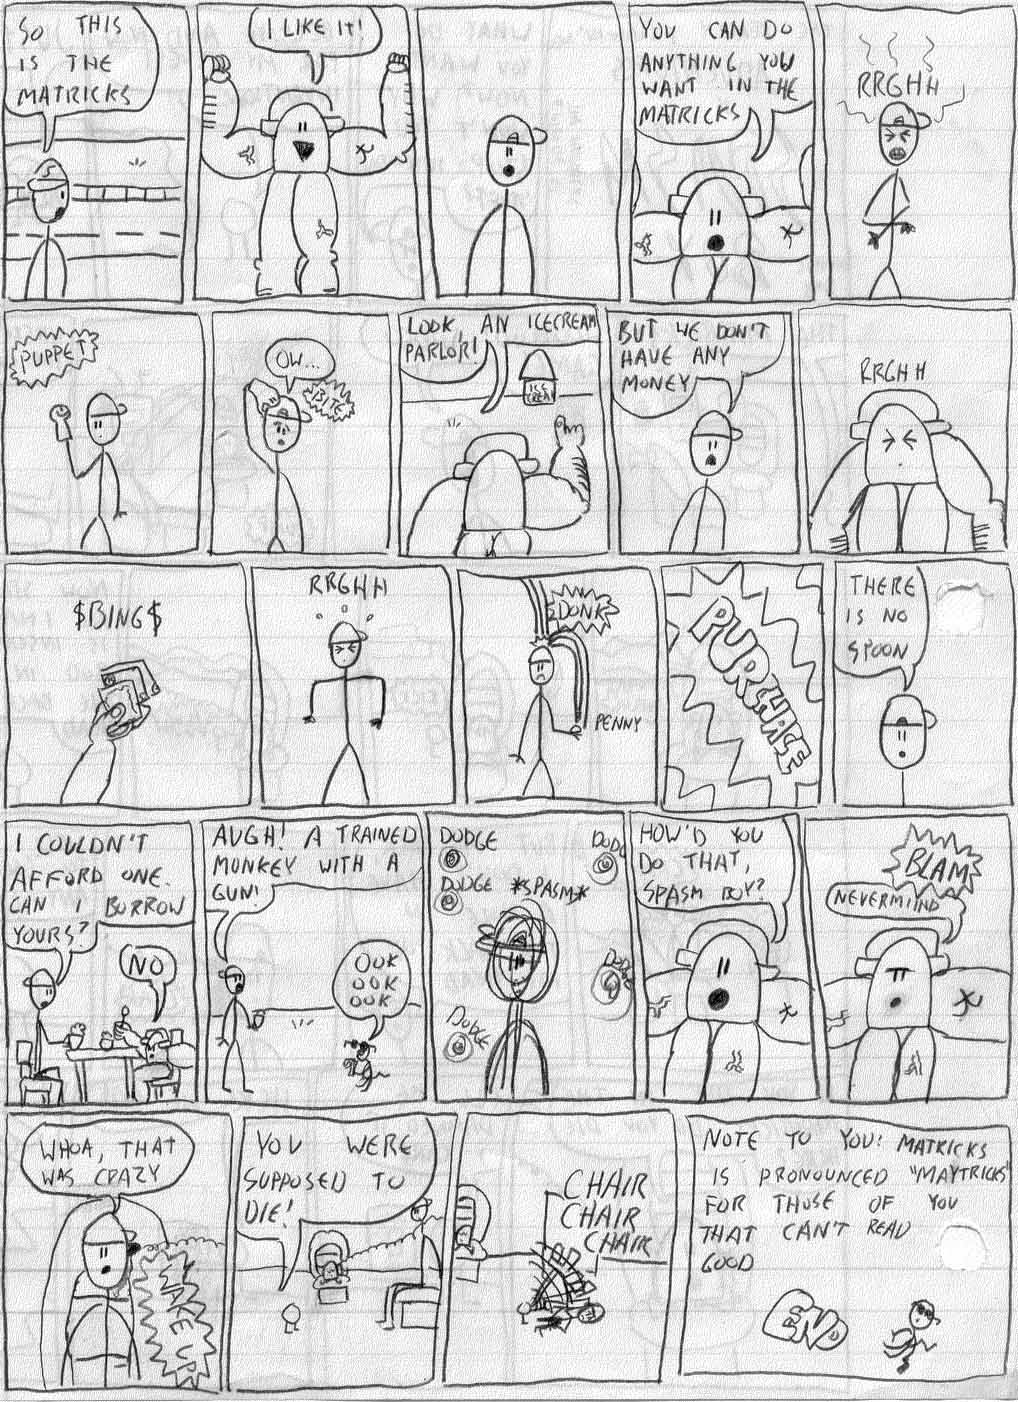 SO THIS
IS THE
MATRICKS
I LIKE IT!
YOU CAN DO
ANYTHING YOU
WANT IN THE
MATRICKS
RRGHH
PUPPET
OW...
BITE
LOOK, AN ICECREAM
PARLOR!
ICE
CREAM
BUT WE DON'T
HAVE ANY
MONEY
RRGHH
$BING$
RRGHH
DONK
PENNY
PURCHASE
THERE
IS NO
SPOON
I COULDN'T
AFFORD ONE.
CAN I BURROW
YOURS?
NO
AUGH! A TRAINED
MONKEY WITH A
GUN!
OOK
OOK
OOK
DODGE
DODGE
DODGE *SPASM*
DODGE
DODGE
HOW'D YOU
DO THAT,
SPASM BOY?
BLAM
NEVERMIND
WHOA, THAT
WAS CRAZY
WAKE UP
YOU WERE
SUPPOSED TO
DIE!
CHAIR
CHAIR
CHAIR
NOTE TO YOU: MATRICKS
IS PRONOUNCED "MAYTRICKS"
FOR THOSE OF YOU
THAT CAN'T READ
GOOD
END